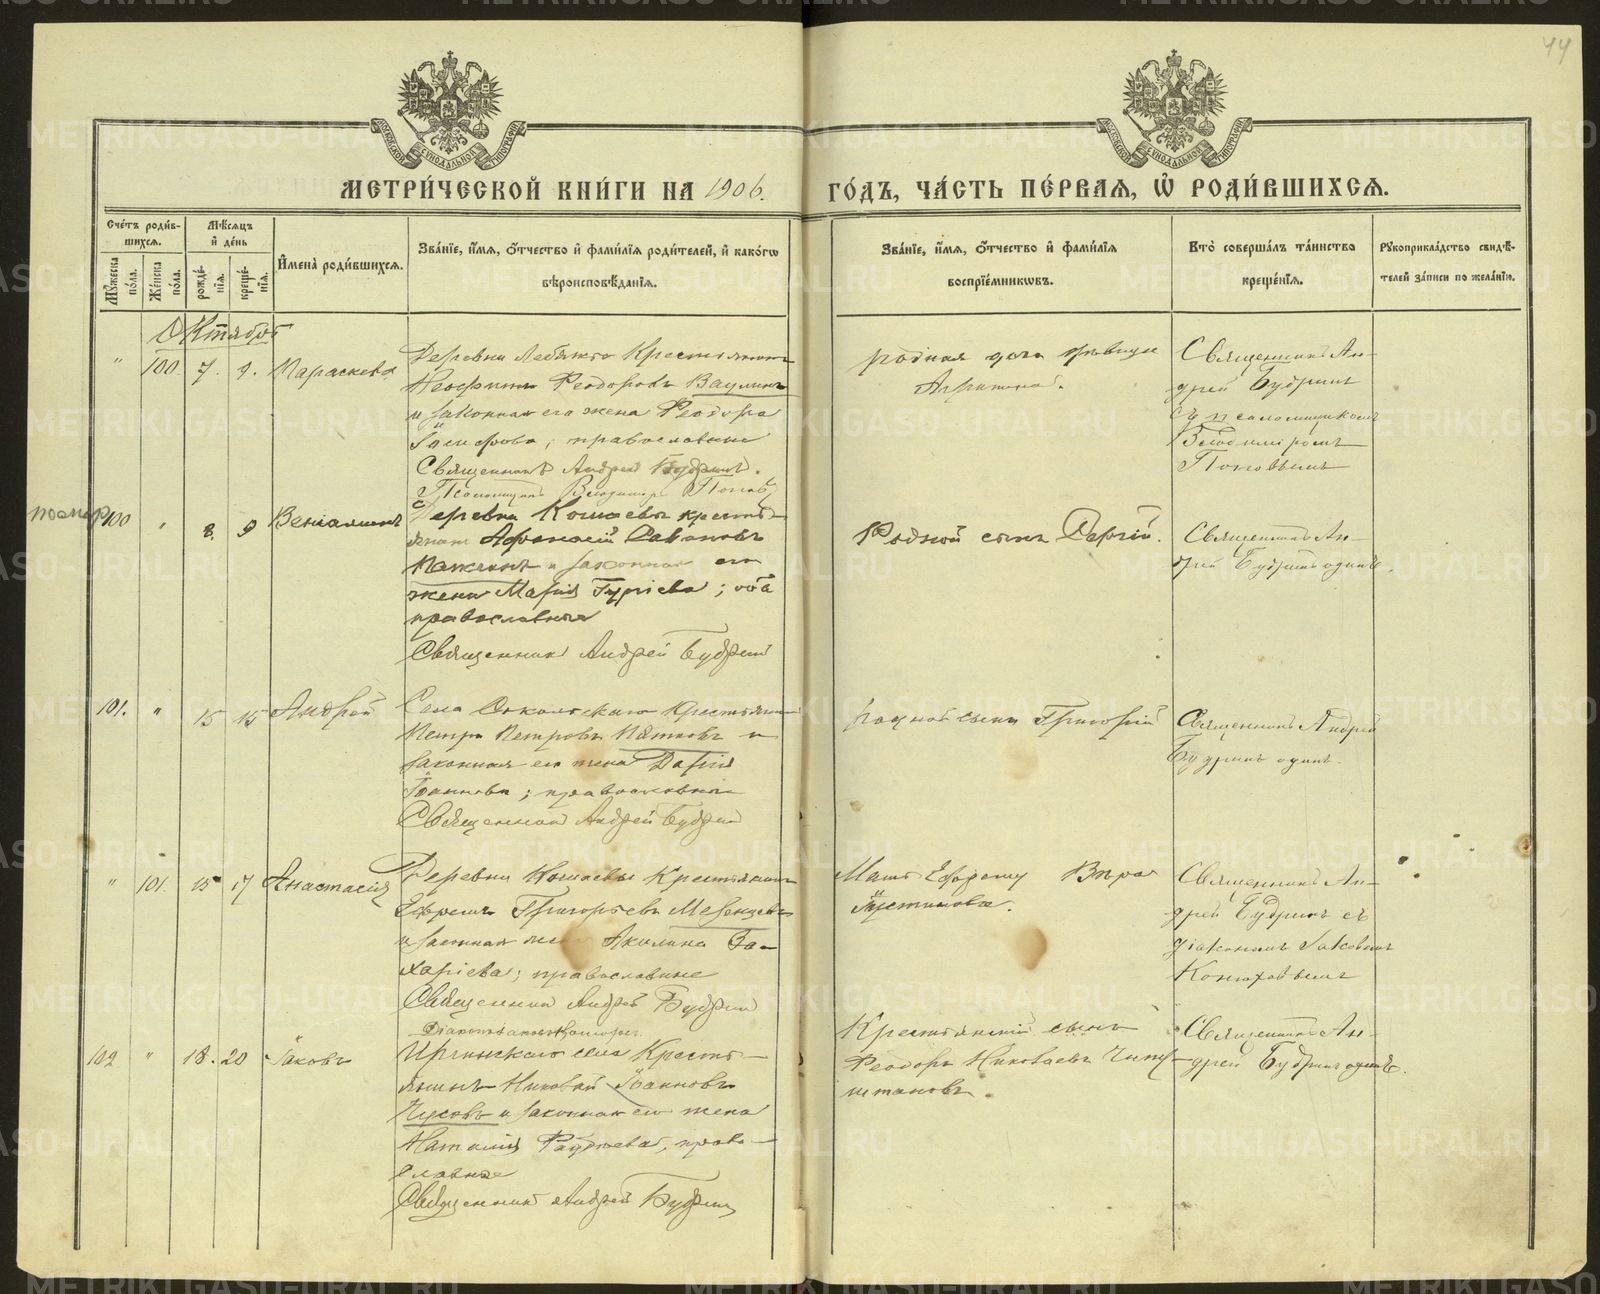 44
МОСКОВСКОЙ СѴНОДАЛЬНОЙ ТИПОГРАФИИ
МОСКОВСКОЙ СѴНОДАЛЬНОЙ ТИПОГРАФИИ
МЕТРИ́ЧЕСКОЙ КНИ́ГИ НА 1906. ГО́ДЪ, ЧА́СТЬ ПЕ́РВАЯ, Ѡ҆ РОДИ́ВШИХСЯ.
Сче́тъ роди́в-
шихся.
Мꙋ́жеска по́ла.
Же́нска по́ла.
Мѣ́сяцъ
и҆ де́нь
рожде́-
нія.
креще́-
нія.
И҆мена̀ роди́вшихся.
Зва́ніе, и҆́мя, ѻ҆́тчество и҆ фами́лія роди́телей, и҆ како́гѡ
вѣроисповѣ́данія.
Зва́ніе, и҆́мя, ѻ҆́тчество и҆ фами́лія
воспріе́мникѡвъ.
Кто̀ соверша́лъ та́инство
креще́нія.
Рꙋкоприкла́дство свидѣ́-
телей за́писи по жела́нію.
Октябрь
" 100 7. 9. Параскева
Деревни Лебяжья Крестьянинъ
Неофитъ Феодоровъ Ваулинъ
и законная его жена Феодора
православные
Священникъ Андрей Будринъ.
Псаломщикъ Владимиръ Поповъ
родная дочь девица
Священникъ Ан-
дрей Будринъ
съ псаломщикомъ
Владимiромъ
Поповымъ
100 " 8. 9 Венiаминъ
Деревни Кошаевы кресть-
янинъ Афонасiй Савиновъ
и законная его
жена Марiя Гурiева; оба
православные
Священникъ Андрей Будрин
Родной сынъ Сергiй.
Священникъ Ан-
дрей Будринъ одинъ.
101. " 15 15 Андрей
Села Сокольскаго Крестьянинъ
Петръ Петровъ Пятковъ и
законная его жена Дарiя
Iоаннова; православные
Священникъ Андрей Будрин
родной сынъ Григорiй
Священникъ Андрей
Будринъ одинъ.
" 101. 15 17 Анастасiя
Деревни Кошаевы Крестьянинъ
Ефремъ Григорьевъ Мезенцевъ
и законная жена Акилина За-
харiева; православные
Священникъ Андрей Будрин
Мать Ефрему Вѣра
Устинова.
Священникъ Ан-
дрей Будринъ съ
дiакономъ Iаковомъ
Конюховымъ
102 " 18. 20 Iаковъ
Иргинскаго села Кресть-
янинъ Николай Iоанновъ
Чусовъ и законная его жена
Наталiя Фадѣева, право-
славные
Священникъ Андрей Будрин
Крестьянскiй сынъ
Феодоръ Николаевъ
Священникъ Ан-
дрей Будринъ одинъ.
METRIKI.GASO-URAL.RU